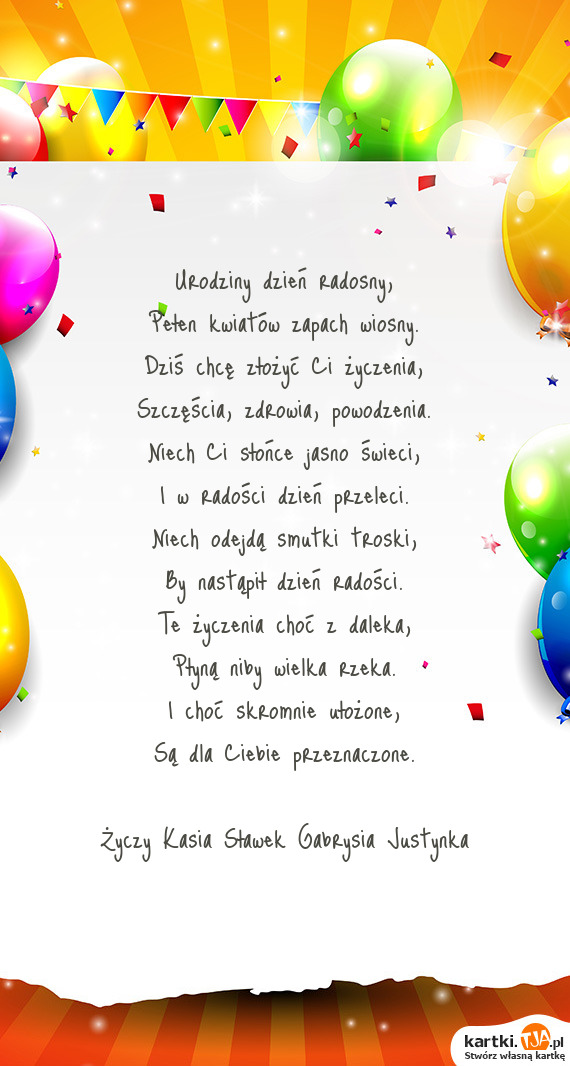 Urodziny dzień radosny,
Pełen kwiatów zapach wiosny.
Dziś chcę złożyć Ci życzenia,
Szczęścia, zdrowia, powodzenia.
Niech Ci słońce jasno świeci,
I w radości dzień przeleci.
Niech odejdą smutki troski,
By nastąpił dzień radości.
Te życzenia choć z daleka,
Płyną niby wielka rzeka.
I choć skromnie ułożone,
Są dla Ciebie przeznaczone.
Życzy Kasia Sławek Gabrysia Justynka
kartki.TJA.pl
Stwórz własną kartkę